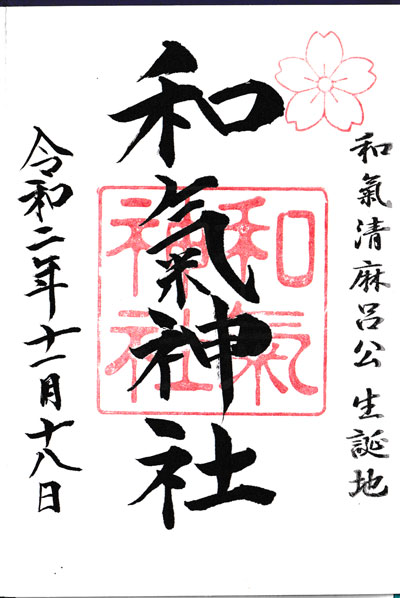 和氣清麻呂公生誕地
和氣神社
和氣
神社
令和二年十一月十八日